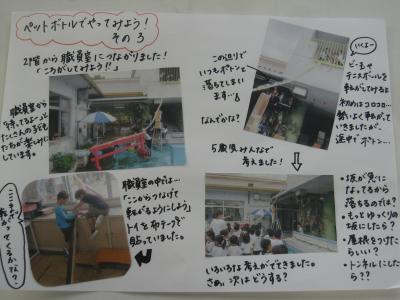 ペットボトルでやってみよう！
その3
2階から職員室につながりました！
「ころがしてみよう！！」
職員室から
「待ってるよ〜」と
たくさんの子ども
たちが楽しみに
しています。
職員室の中では…
「ここからつなげて
転がるようにしよう」
トイを布テープで
貼っていました。
ここまで
転がってくるかな？
この辺りで
いつもポトンと
落ちてしまい
ます…。
なんでかな？
いくよー
ビー玉や
テニスボールを
転がしてみるよ
初めはコロコロ…
勢いよく転がって
いきましたが、
途中でポトン…
5歳児みんなで
考えました！
・坂が急に
なってるから
落ちるのでは？
・もっとゆっくりの
坂にしたら？
・屋根をつけた
らいい？
・トンネルにし
たら？？
いろいろな考えがでてきました。
さぁ、次はどうする？